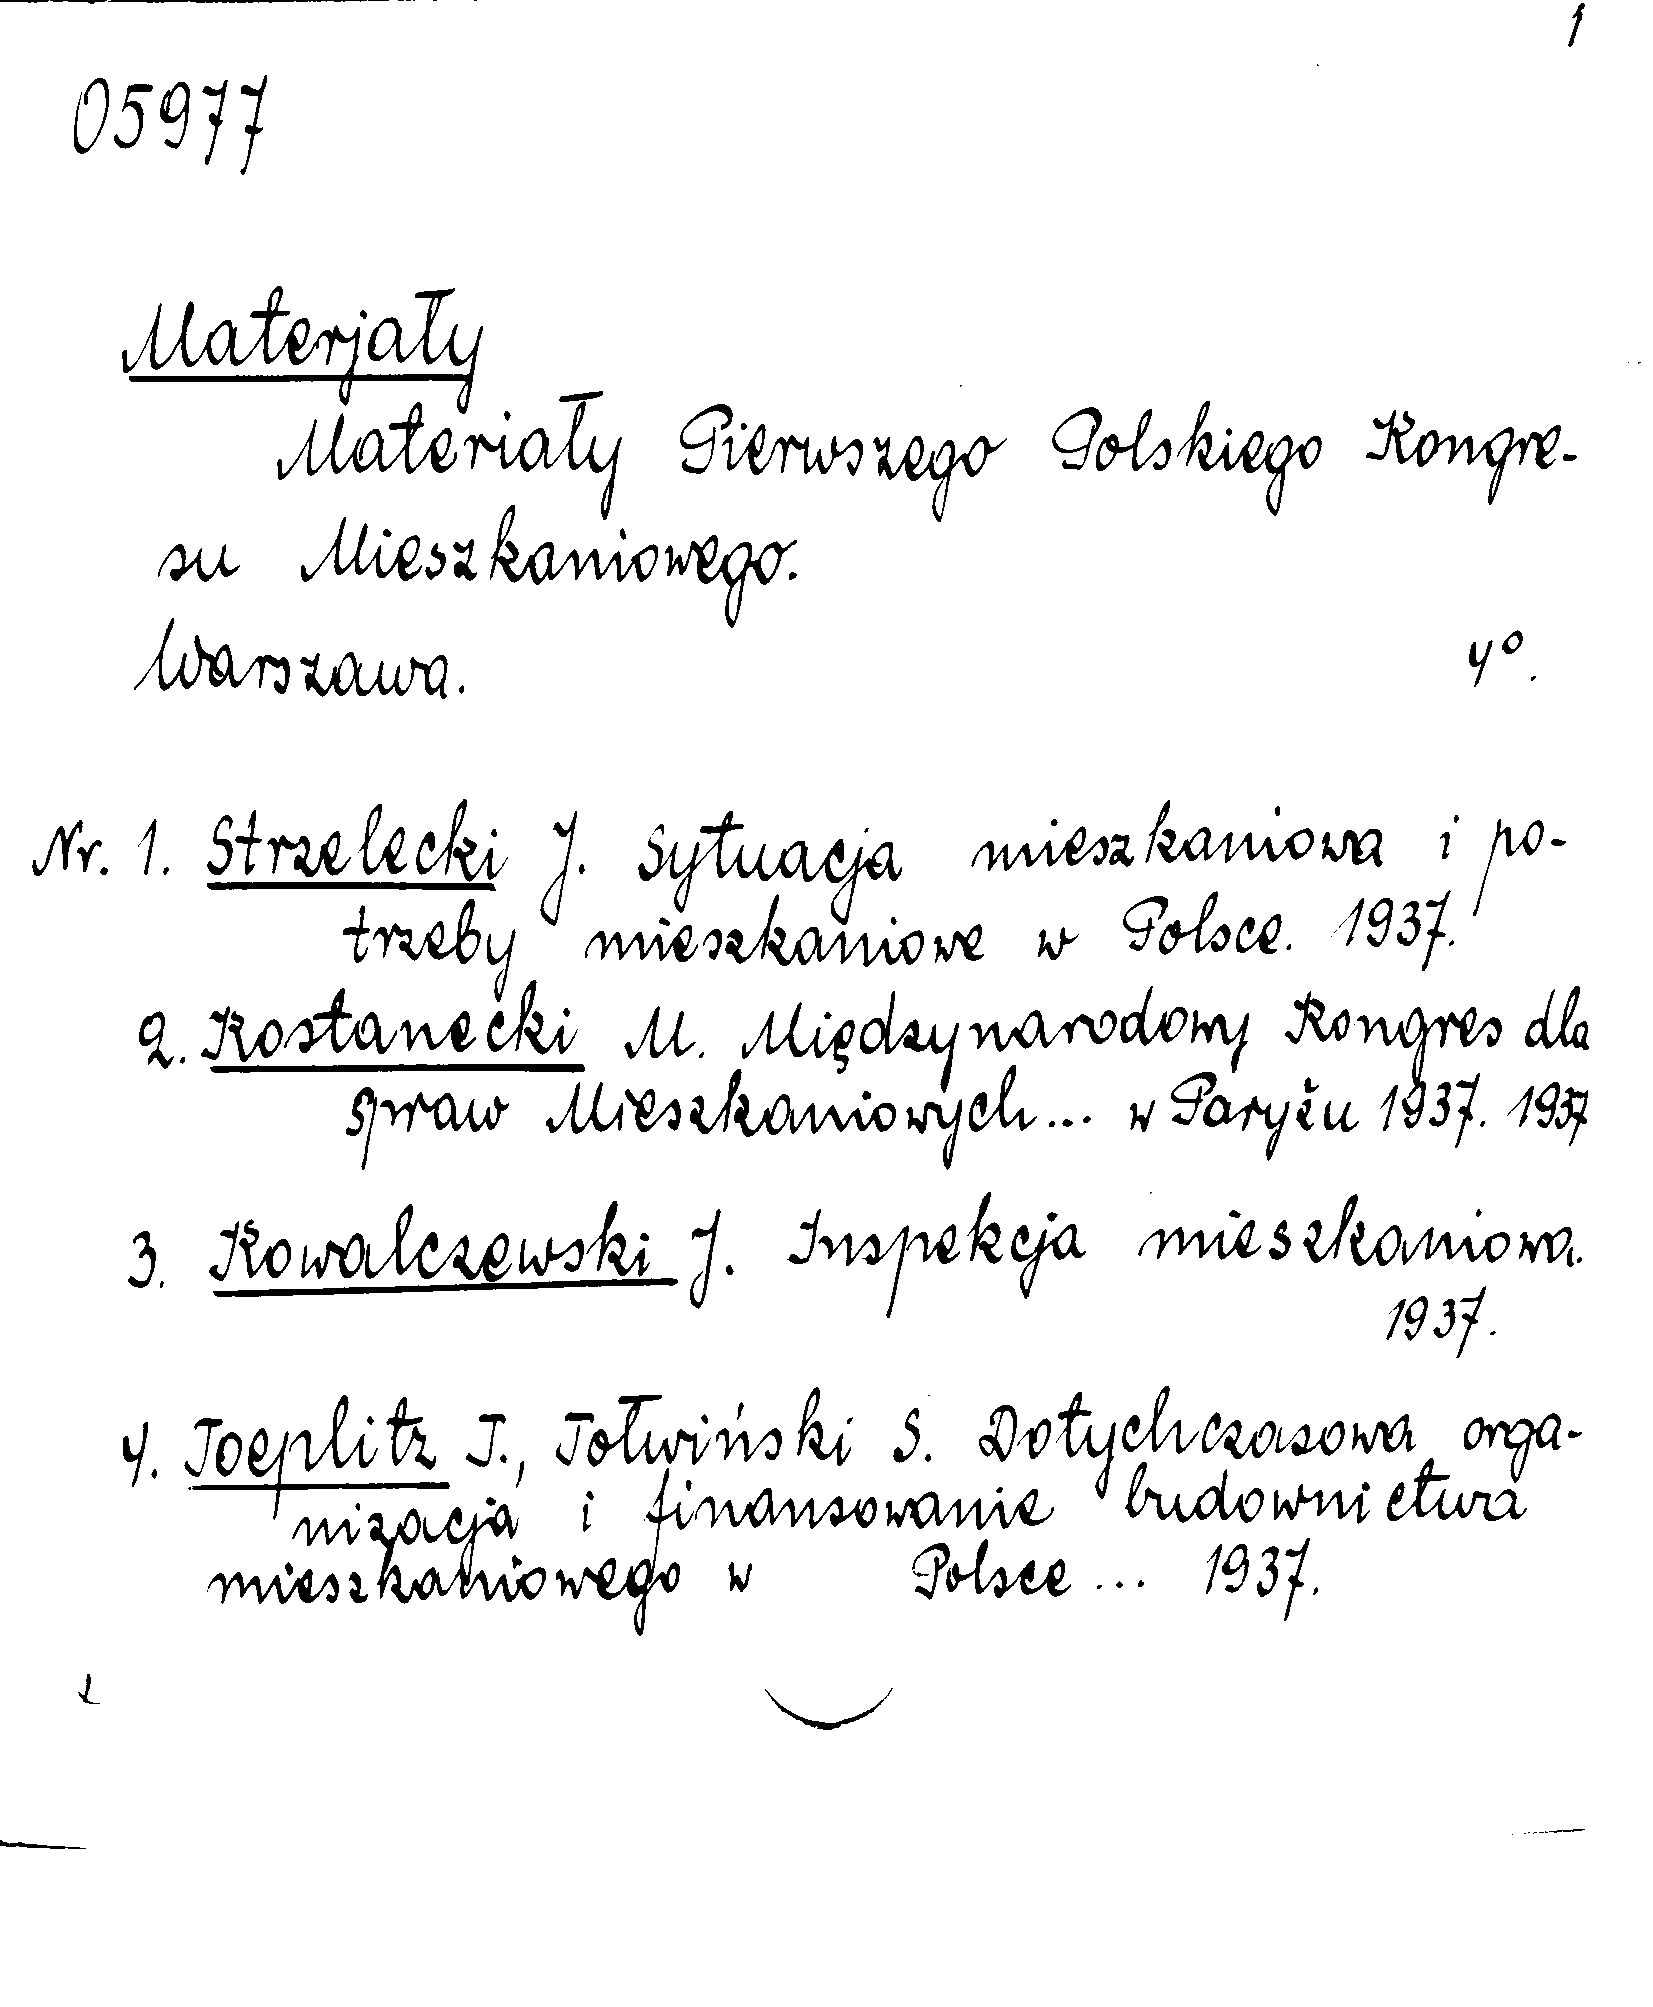 1
05977
Materjały
Materiały Pierwszego Polskiego Kongre-
su Mieszkaniowego.
Warszawa. 4°.
Nr. 1. Strzelecki J. Sytuacja mieszkaniowa i po-
trzeby mieszkaniowe w Polsce. 1937.
2. Kostanecki M. Międzynarodowy Kongres dla
spraw Mieszkaniowych... w Paryżu 1937. 1937
3. Kowalczewski J. Inspekcja mieszkaniowa.
1937.
4. Toeplitz T., Tołwiński S. Dotychczasowa orga-
nizacja i finansowanie budownictwa
mieszkaniowego w Polsce... 1937.